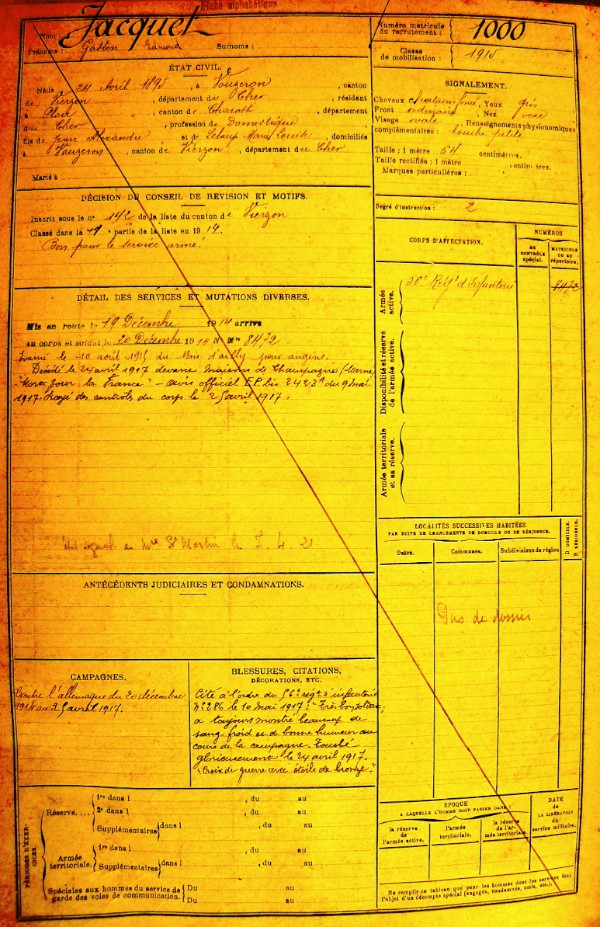 Fiche alphabétique
Nom : Jacquet
Prénoms : Gaston Edmond Surnoms :
Numéro matricule du recrutement : 1000
Classe de mobilisation : 1915
ÉTAT CIVIL.
Né le 24 Avril 1895, à Vouzeron, canton
de Vierzon, département du Cher, résidant
à Ploix, canton de Charost, département
du Cher, profession de Domestique
fils de Jean Alexandre et de Marie Louise, domiciliés
à Vouzeron, canton de Vierzon, département du Cher
Marié à
SIGNALEMENT.
Cheveux châtains, Yeux gris
Front ordinaire, Nez
Visage ovale, Renseignements physionomiques
complémentaires : bouche petite
Taille : 1 mètre 64 centimètres.
Taille rectifiée : 1 mètre , centimètres.
Marques particulières :
DÉCISION DU CONSEIL DE REVISION ET MOTIFS.
Inscrit sous le n° de la liste du canton de Vierzon
Classé dans la 1 partie de la liste en 1914
Bon pour le service armé.
Degré d'instruction : 2
CORPS D'AFFECTATION.
NUMÉROS
AU CONTRÔLE spécial.
MATRICULE OU AU répertoire.
Armée active.
Régt d'Infanterie
8472
Disponibilité et réserve de l'armée active.
Armée territoriale et sa réserve.
DÉTAIL DES SERVICES ET MUTATIONS DIVERSES.
Mis en route le 19 Décembre 1914 arrivé
au corps et soldat le 20 Décembre 1914 N° Mle 8472
Evacué le 10 août 1915 du Bois d'ailly pour angine.
Décédé le 24 avril 1917 devant Maisons de Champagne (Marne)
"Mort pour la France" - avis officiel EP bis 2423 du 9 mai
1917. Rayé des contrôles du corps le 25 avril 1917.
St Martin le 4. 21
LOCALITÉS SUCCESSIVES HABITÉES
PAR SUITE DE CHANGEMENTS DE DOMICILE OU DE RÉSIDENCE.
Dates.
Communes.
Subdivisions de région.
D. DOMICILE. R. RÉSIDENCE.
Pas de dossier
ANTÉCÉDENTS JUDICIAIRES ET CONDAMNATIONS.
CAMPAGNES.
Contre l'allemagne du 20 décembre
1914 au 25 avril 1917.
BLESSURES, CITATIONS,
DÉCORATIONS, ETC.
Cité à l'ordre du 56e régt d'infanterie
N° 286 le 10 mai 1917 : "Très bon soldat,
a toujours montré beaucoup de
sang froid et de bonne humeur au
cours de la campagne. Tombé
glorieusement le 24 avril 1917.
Croix de guerre avec étoile de bronze."
PÉRIODES D'EXERCICES.
Réserve.....
1re dans l , du au
2e dans l , du au
Supplémentaires dans l , du au
Armée territoriale.
1re dans l , du au
Supplémentaires dans l , du au
Spéciales aux hommes du service de garde des voies de communication.
Du au
Du au
ÉPOQUE
A LAQUELLE L'HOMME DOIT PASSER DANS :
la réserve de l'armée active.
l'armée territoriale.
la réserve de l'armée territoriale.
DATE de LA LIBÉRATION du service militaire.
Ne remplir ce tableau que pour les hommes dont les services font
l'objet d'un décompte spécial (engagés, condamnés, omis, etc.).